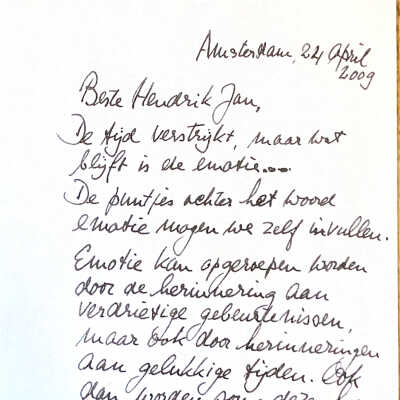 Amsterdam, 24 April
2009
Beste Hendrik Jan,
De tijd verstrijkt, maar wat
blijft is de emotie....
De puntjes achter het woord
emotie mogen we zelf invullen.
Emotie kan opgeroepen worden
door de herinnering aan
verdrietige gebeurtenissen,
maar ook door herinneringen
aan gelukkige tijden. Ook
dan worden